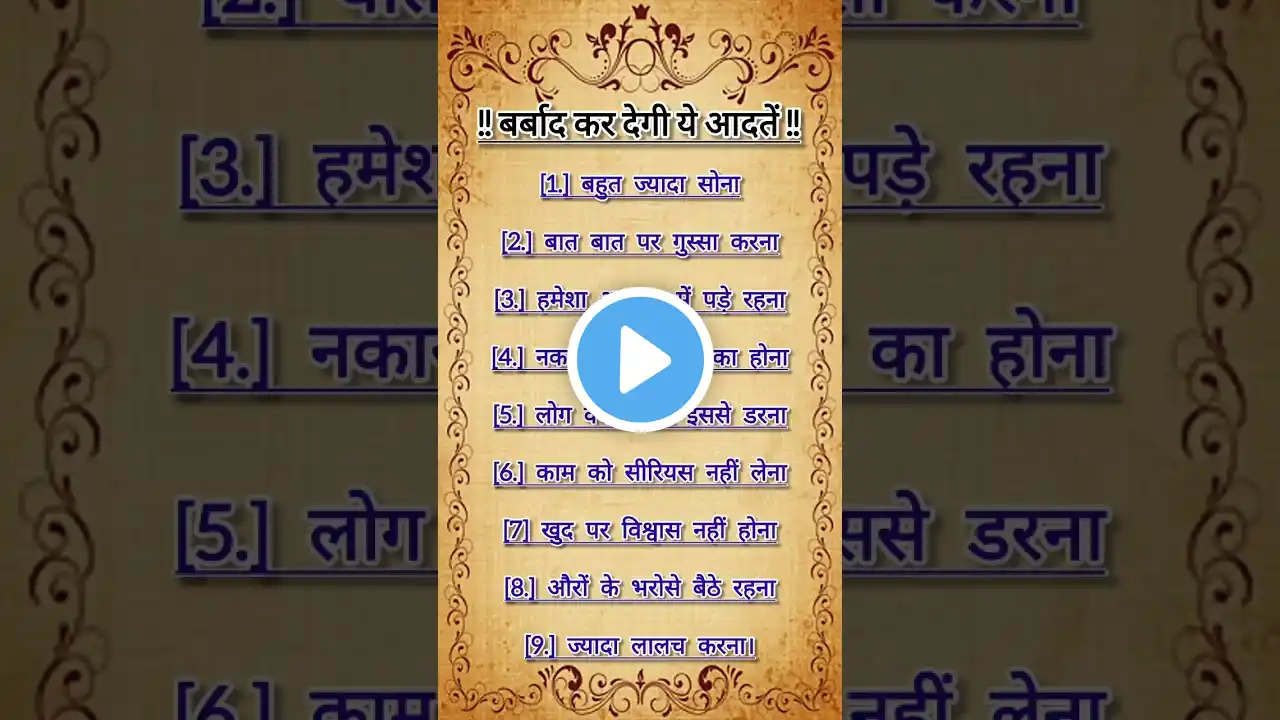 !! बर्बाद कर देगी ये आदतें !!
[1.] बहुत ज्यादा सोना
[2.] बात बात पर गुस्सा करना
[3.] हमेशा में पड़े रहना
[4.] का होना
[5.] लोग इससे डरना
[6.] काम को सीरियस नहीं लेना
[7] खुद पर विश्वास नहीं होना
[8.] औरों के भरोसे बैठे रहना
[9.] ज्यादा लालच करना।